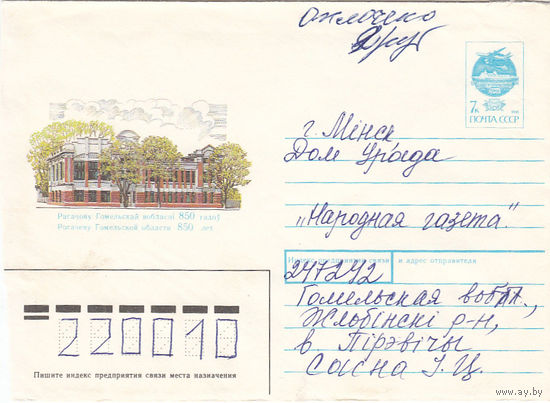 7к
ПОЧТА СССР
г. Мінск
Дом Урада
"Народная газета".
Рагачову Гомельскай вобласці 850 гадоў
Рогачеву Гомельской области 850 лет
Индекс предприятия связи и адрес отправителя
247242
Гомельская вобл.,
Жлобінскі р-н,
в. Пірэвічы
Сасна І. Ц.
220010
Пишите индекс предприятия связи места назначения
www.ay.by